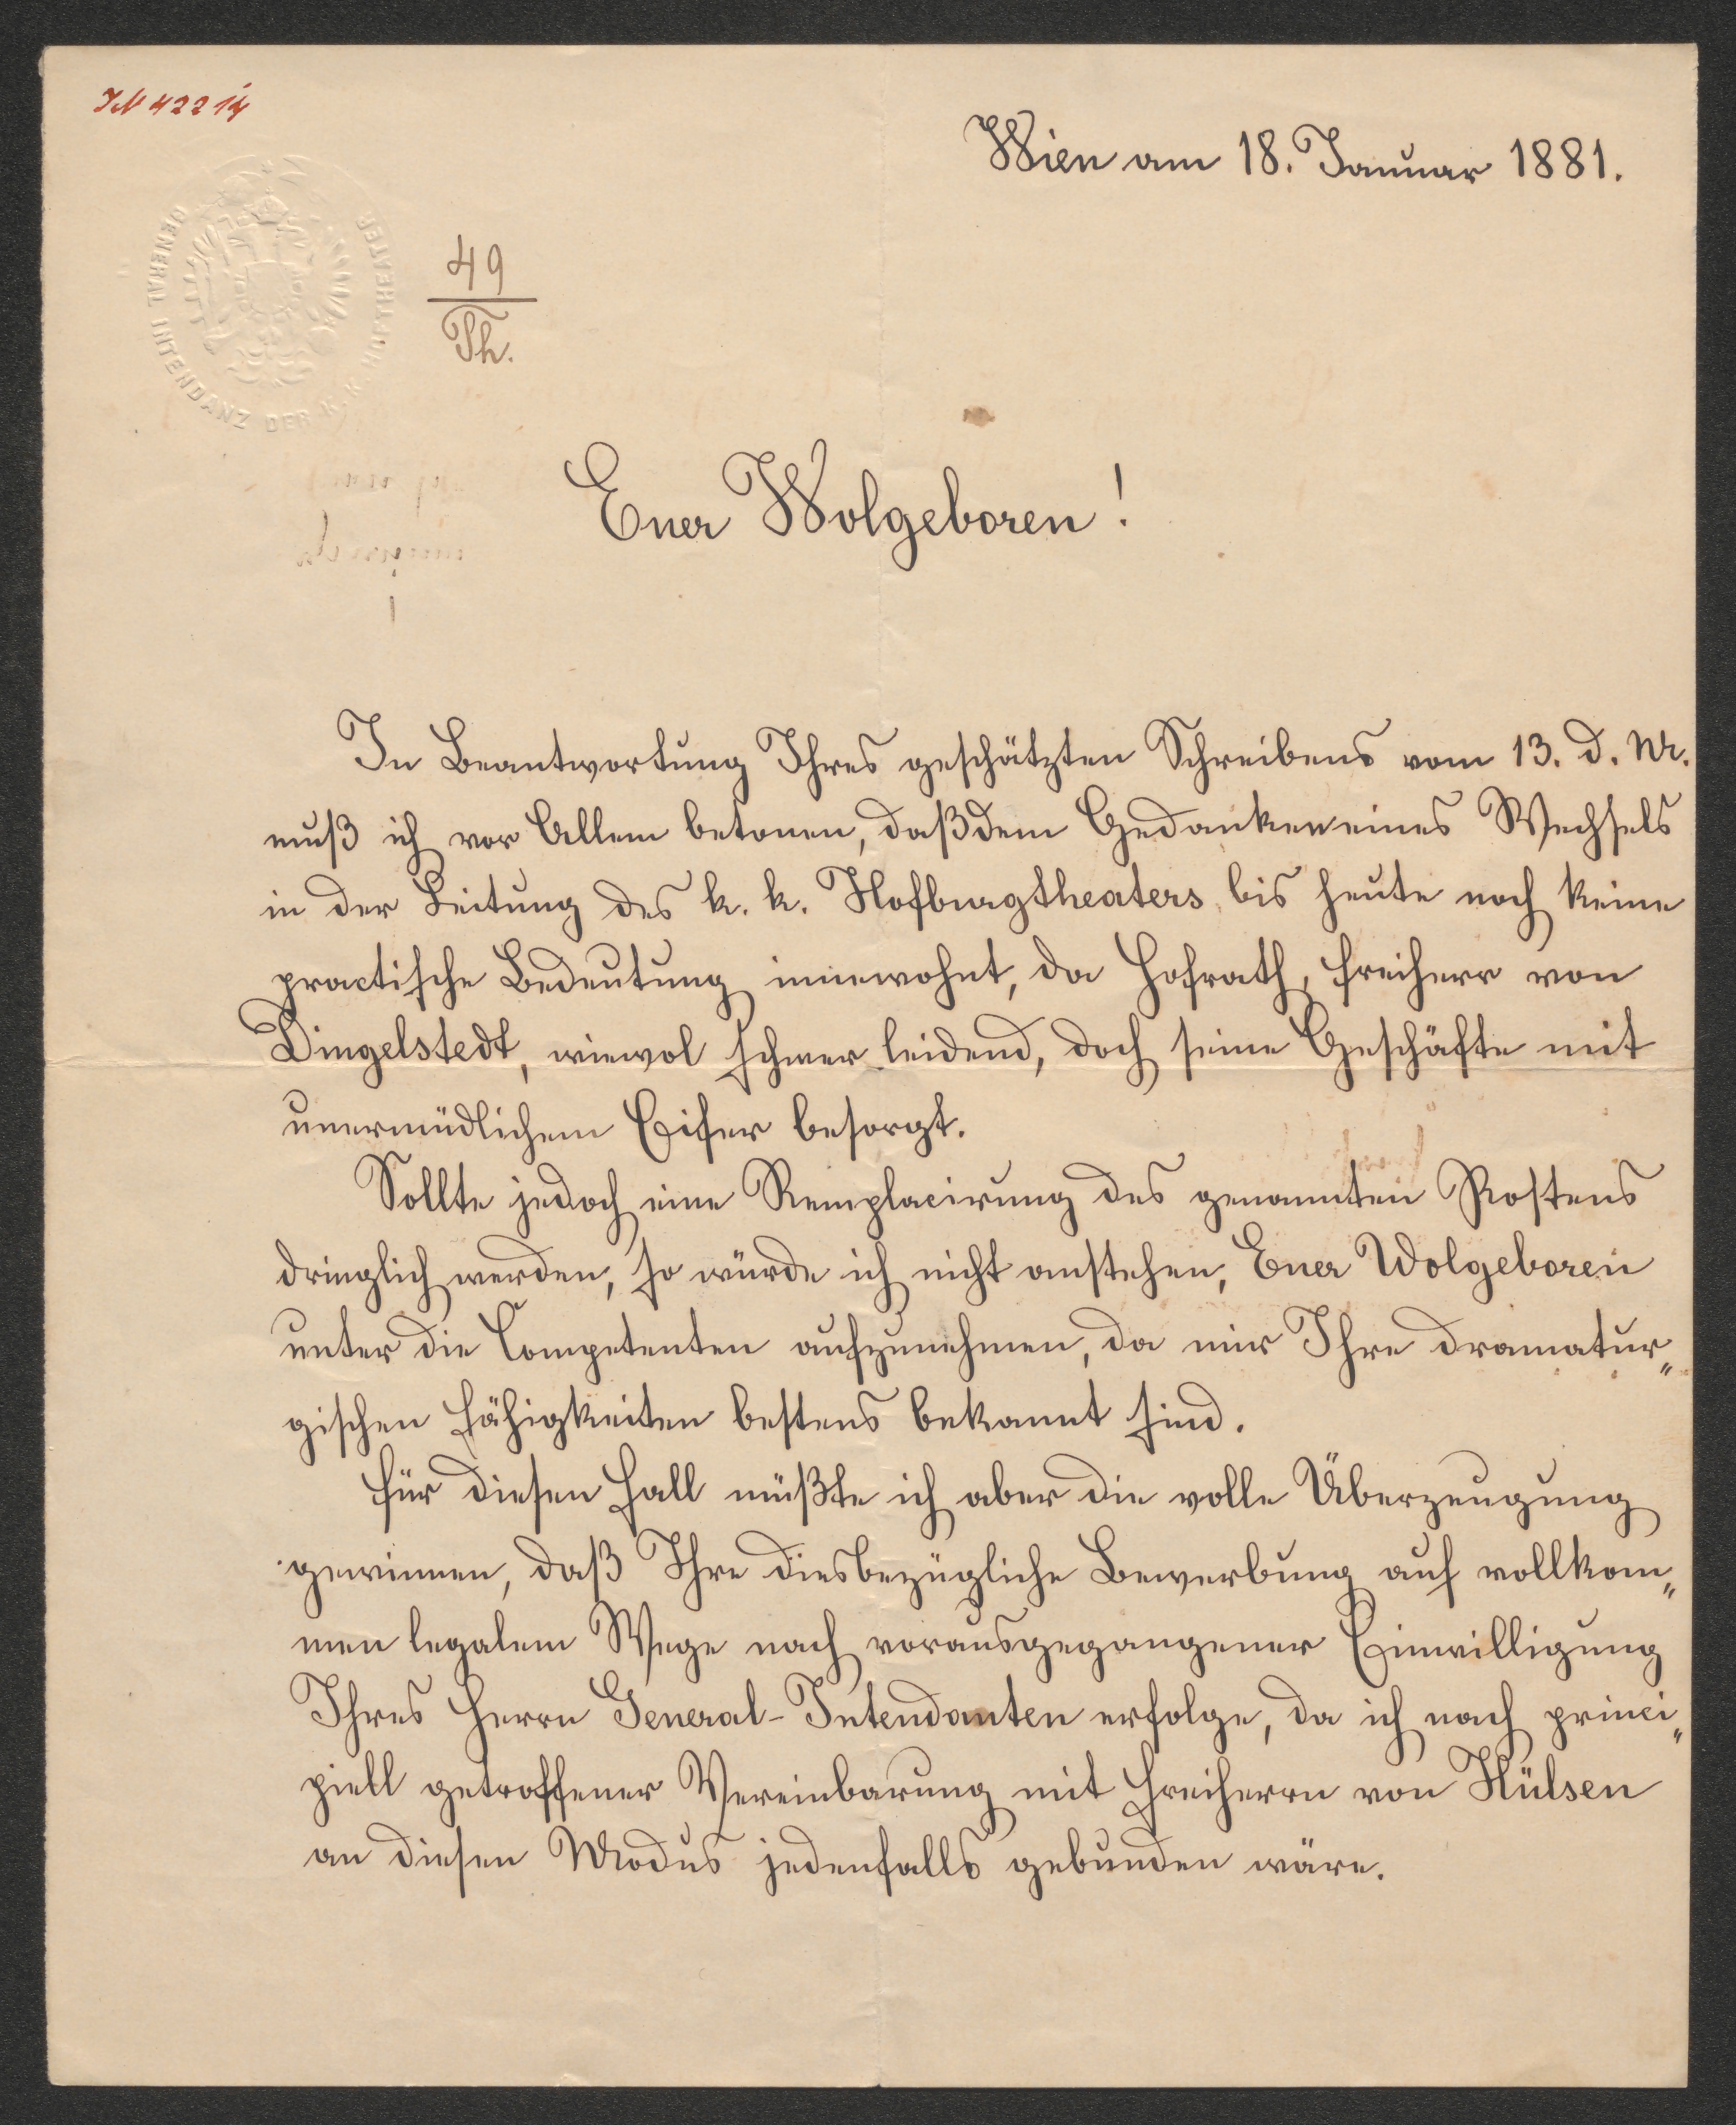 IN 42214
Wien am 18. Januar 1881.
GENERAL INTENDANZ DER K. K. HOFTHEATER
49
Th.
Euer Wolgeboren!
In Beantwortung Ihres geschätzten Schreibens vom 13. d. M.
muß ich vor Allem betonen, daß dem Gedanken eines Wechsels
in der Leitung des k. k. Hofburgtheaters bis heute noch keine
practische Bedeutung innewohnt, da Hofrath, Freiherr von
Dingelstedt, wiewol schwer leidend, doch seine Geschäfte mit
unermüdlichem Eifer besorgt.
Sollte jedoch eine Remplacirung des genannten Postens
dringlich werden, so würde ich nicht anstehen, Euer Wolgeboren
unter die Competenten aufzunehmen, da mir Ihre dramatur„
gischen Fähigkeiten bestens bekannt sind.
Für diesen Fall müßte ich aber die volle Überzeugung
gewinnen, daß Ihre diesbezügliche Bewerbung auf vollkom„
men legalem Wege nach vorausgegangener Einwilligung
Ihres Herrn General-Intendanten erfolge, da ich nach princi„
piell getroffener Vereinbarung mit Freiherrn von Hülsen
an diesen Modus jedenfalls gebunden wäre.